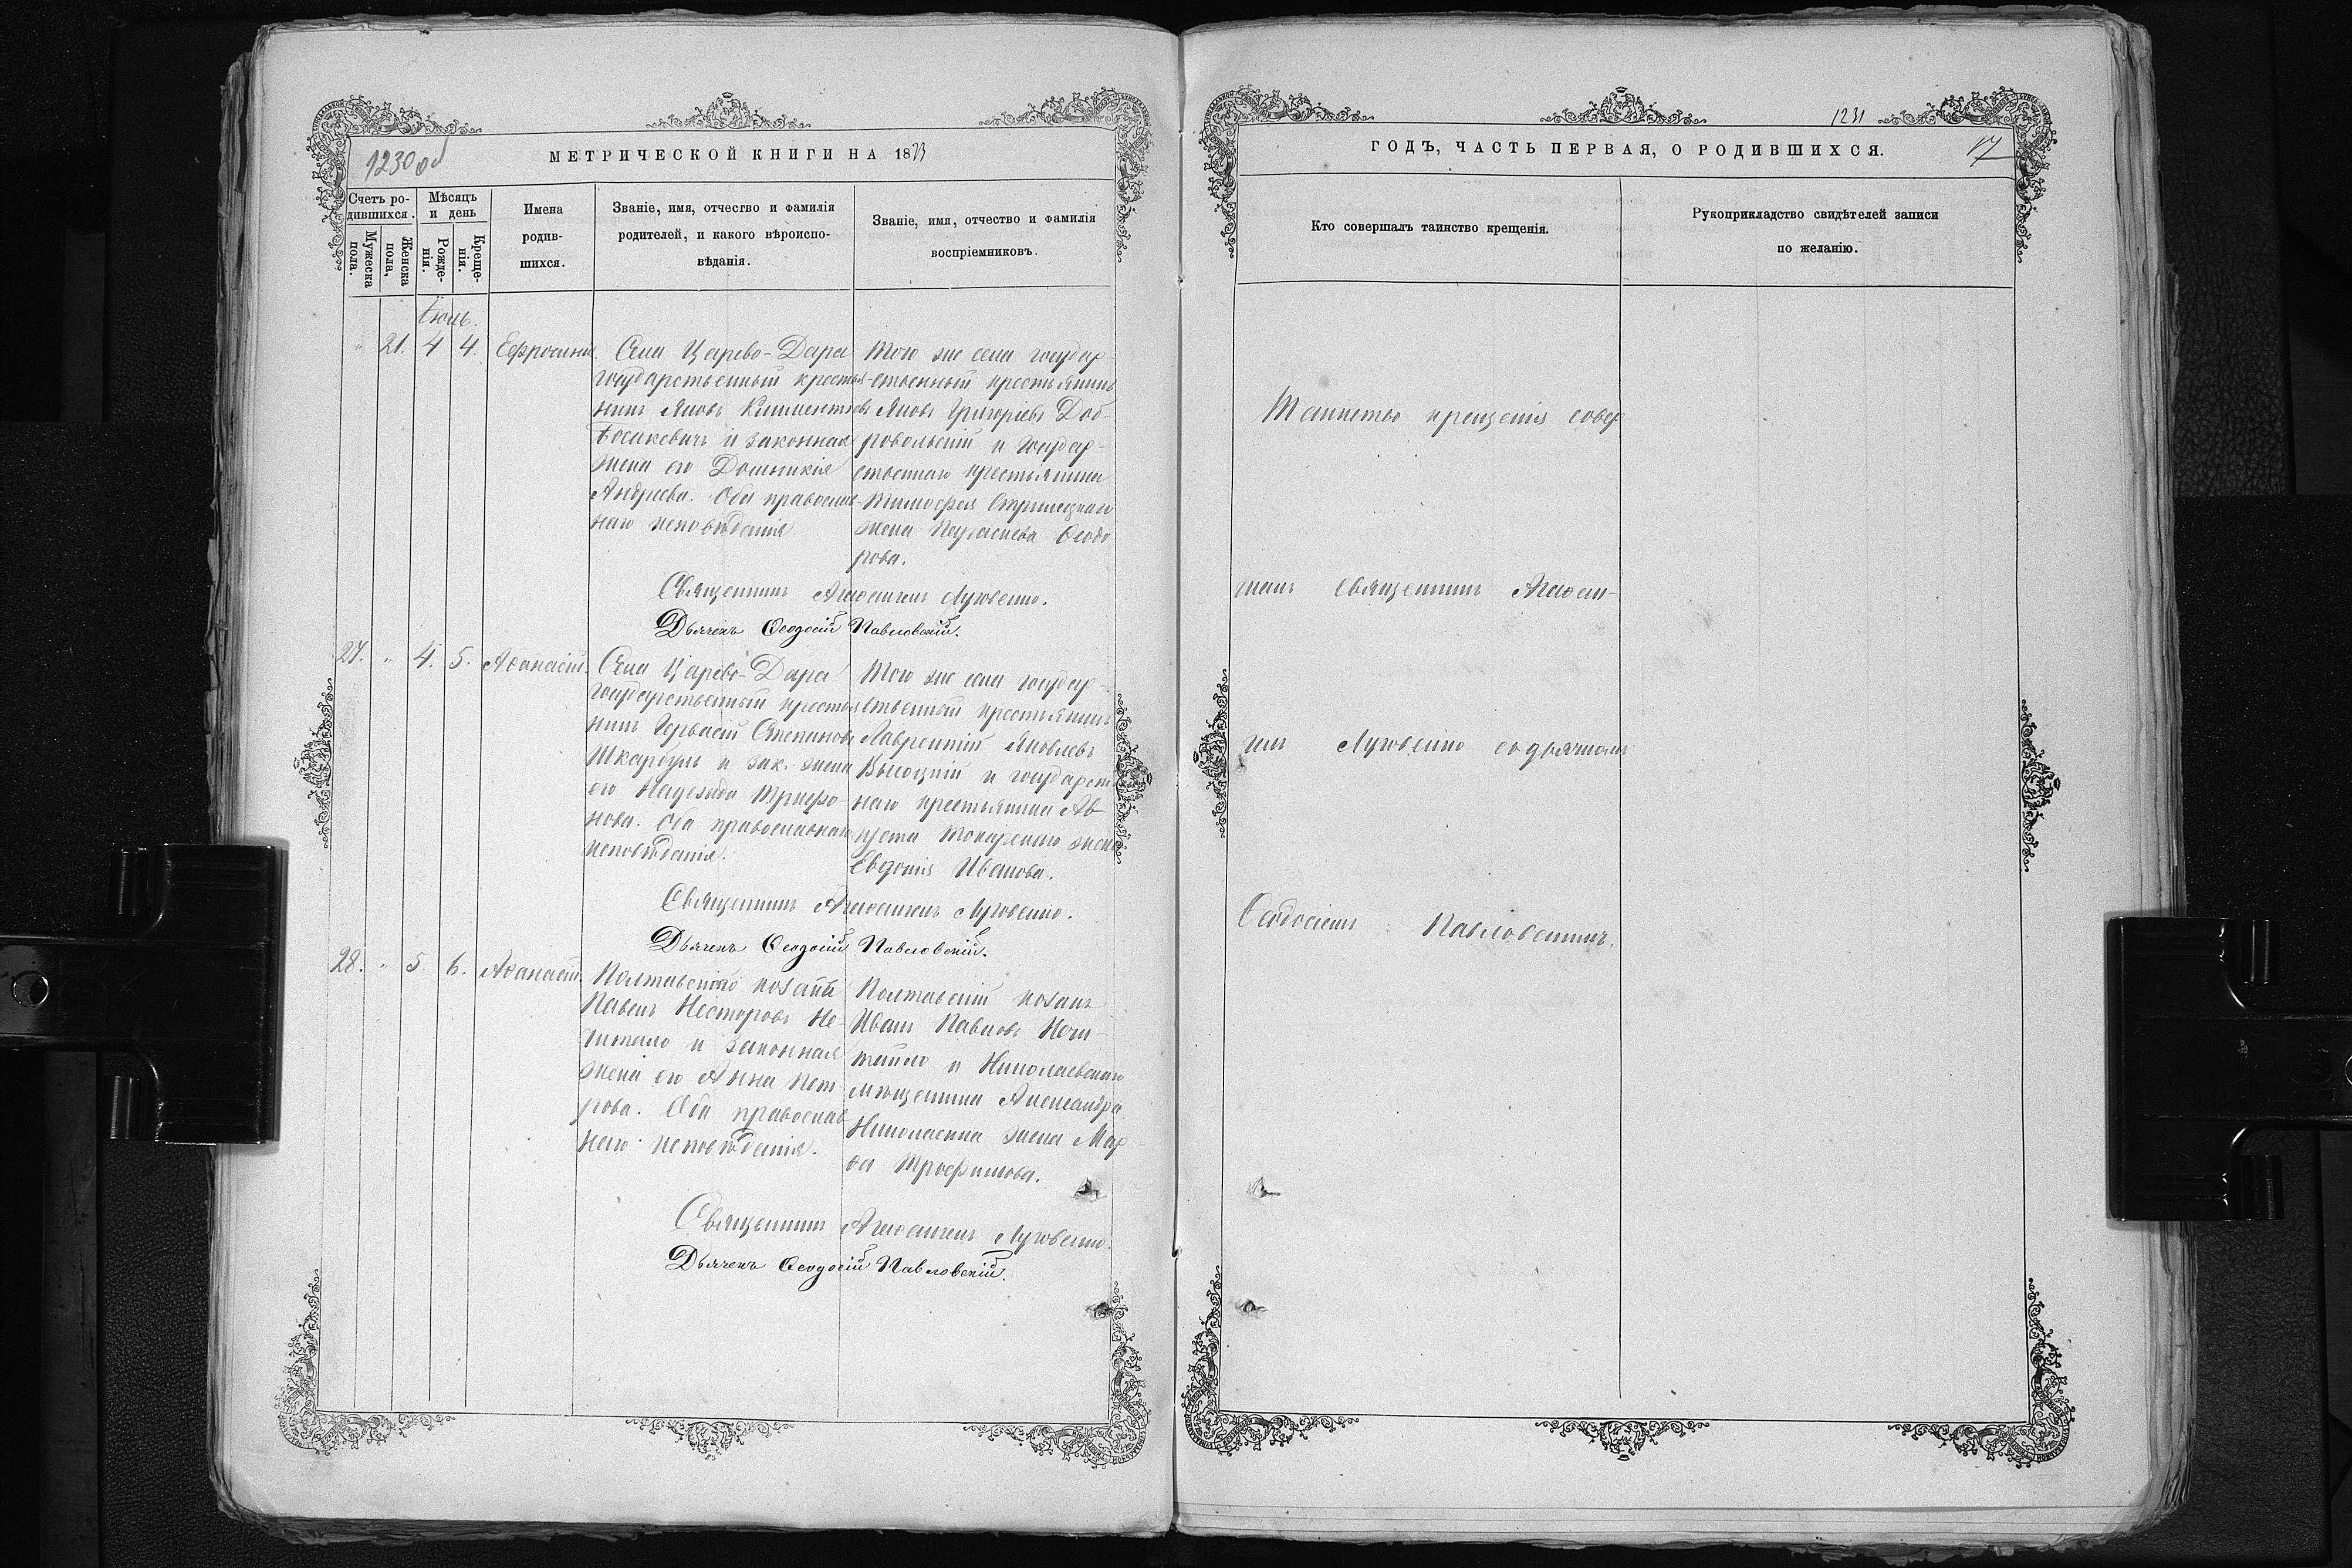 1230 об
МЕТРИЧЕСКОЙ КНИГИ НА 1873
Счетъ ро-
дившихся.
Мужеска
пола.
Женска
пола,
Мѣсяцъ
и день
Рожде-
нія.
Креще-
нія.
Имена
родив-
шихся.
Званіе, имя, отчество и фамилія
родителей, и какого вѣроиспо-
вѣданія.
Званіе, имя, отчество и фамилія
воспріемниковъ.
Іюль.
" 21. 4 4. Ефросинія.
Села Царево-Дара
государственный крестья-
нинъ Яковъ Климентіевъ
и законная
жена его Домникія
Андреева. Оба православ-
наго исповѣданія
Того же села государ-
ственный крестьянинъ
Яковъ Григоріевъ Доб-
ровольскій и государ-
ственнаго крестьянина
Тимофея Стрилецкаго
жена Параскева Ѳеодо
рова.
Священникъ Агаѳангелъ Луговенко.
Дьячекъ Ѳеодосій Павловскій.
27. " 4. 5. Аѳанасій.
Села Царево-Дара
государственный крестья
нинъ Гервасій Степановъ
Шкарбуль и зак. жена
его Надежда Трифо-
нова. Оба православнаго
исповѣданія.
Того же села государ-
ственный крестьянинъ
Лаврентій Яковлевъ
Высоцкій и государст
наго крестьянина Ав
густа Токаренко жена
Евдокія Иванова.
Священникъ Агаѳангелъ Луговенко.
Дьячекъ Ѳеодосій Павловскій.
28. " 5. 6. Аѳанасій.
Полтавскій козакъ
Павелъ Несторовъ Не-
читайло и законная
жена его Анна Пет-
рова. Оба православ
наго исповѣданія.
Полтавскій козакъ
Иванъ Павловъ Нечи-
тайло и Николаевскаго
мѣщанина Александра
Николаенка жена Мар
ѳа Трофимова.
Священникъ Агаѳангелъ Луговенко.
Дьячекъ Ѳеодосій Павловскій.
1231
17
ГОДЪ, ЧАСТЬ ПЕРВАЯ, О РОДИВШИХСЯ.
Кто совершалъ таинство крещенія.
Рукоприкладство свидѣтелей записи
по желанію.
Таинство крещенія совер
шалъ Священникъ Агаѳан-
гелъ Луговенко съ дьячкомъ
Ѳеодосіемъ Павловскимъ.